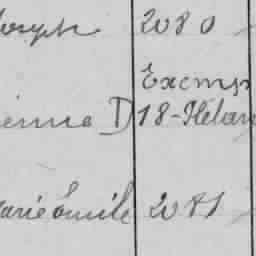 Joseph 2080
Exemp
ienne D 18-Hélan
Marie Émile 2081